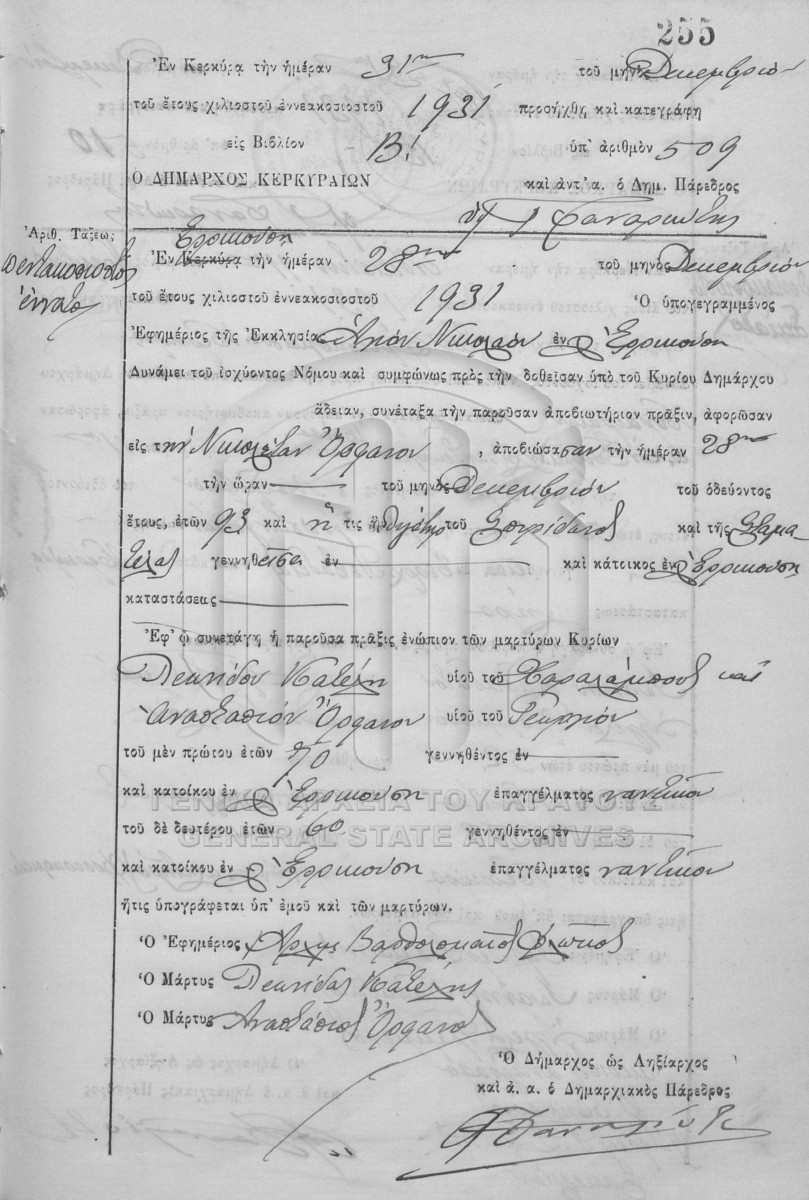 255
Ἐν Κερκύρᾳ τὴν ἡμέραν 31ην τοῦ μηνὸς Δεκεμβρίου
τοῦ ἔτους χιλιοστοῦ ἐννεακοσιοστοῦ 1931 προσήχθη καὶ κατεγράφη
εἰς Βιβλίον Β! ὑπ' ἀριθμὸν 509
Ο ΔΗΜΑΡΧΟΣ ΚΕΡΚΥΡΑΙΩΝ καὶ ἀντ' α. ὁ Δημ. Πάρεδρος
Φαναριώτης
Ἀριθ. Τάξεως
πεντακοσιοστὸς
ἔννατος
Ἐρρικούση
Ἐν Κερκύρᾳ τὴν ἡμέραν 28ην τοῦ μηνὸς Δεκεμβρίου
τοῦ ἔτους χιλιοστοῦ ἐννεακοσιοστοῦ 1931 Ὁ ὑπογεγραμμένος
Ἐφημέριος τῆς Ἐκκλησίας Ἁγίου Νικολάου ἐν Ἐρρικούση
Δυνάμει τοῦ ἰσχύοντος Νόμου καὶ συμφώνως πρὸς τὴν δοθεῖσαν ὑπὸ τοῦ Κυρίου Δημάρχου
ἄδειαν, συνέταξα τὴν παροῦσαν ἀποβιωτήριον πρᾶξιν, ἀφορῶσαν
εἰς τὴν Νικολέταν Ὀρφανοῦ , ἀποβιώσασαν τὴν ἡμέραν 28ην
τὴν ὥραν τοῦ μηνὸς Δεκεμβρίου τοῦ ὁδεύοντος
ἔτους, ἐτῶν 93 καὶ ἥ τις ἦ θυγάτηρ τοῦ Σπυρίδωνος καὶ τῆς Σταμα-
τέλας γεννηθεῖσα ἐν καὶ κάτοικος ἐν Ἐρρικούση
καταστάσεως
Ἐφ' ᾧ συνετάγη ἡ παροῦσα πρᾶξις ἐνώπιον τῶν μαρτύρων Κυρίων
Λεωνίδου Κατέχη υἱοῦ τοῦ Χαραλάμπους καὶ
Ἀναστασίου Ὀρφανοῦ υἱοῦ τοῦ Γεωργίου
τοῦ μὲν πρώτου ἐτῶν 70 γεννηθέντος ἐν
καὶ κατοίκου ἐν Ἐρρικούση ἐπαγγέλματος ναυτικοῦ
ΓΕΝΙΚΑ ΑΡΧΕΙΑ ΤΟΥ ΚΡΑΤΟΥΣ
τοῦ δὲ δευτέρου ἐτῶν 60 γεννηθέντος ἐν
GENERAL STATE ARCHIVES
καὶ κατοίκου ἐν Ἐρρικούση ἐπαγγέλματος ναυτικοῦ
ἥτις ὑπογράφεται ὑπ' ἐμοῦ καὶ τῶν μαρτύρων.
Ὁ Ἐφημέριος Βαρθολομαῖος
Ὁ Μάρτυς Λεωνίδας Κατέχης
Ὁ Μάρτυς Ἀναστάσιος Ὀρφανὸς
Ὁ Δήμαρχος ὡς Ληξίαρχος
καὶ ἀ. α. ὁ Δημαρχιακὸς Πάρεδρος